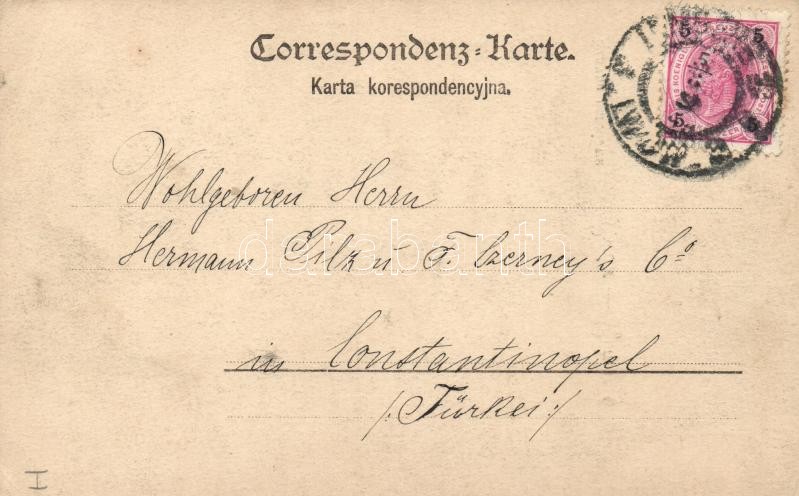 Correspondenz-Karte.
Karta korespondencyjna.
5 5
5 5
Wohlgeboren Herrn
Hermann Pilz u F. Czerney's Co
darabanth
in Constantinopel
/: Türkei :/
I